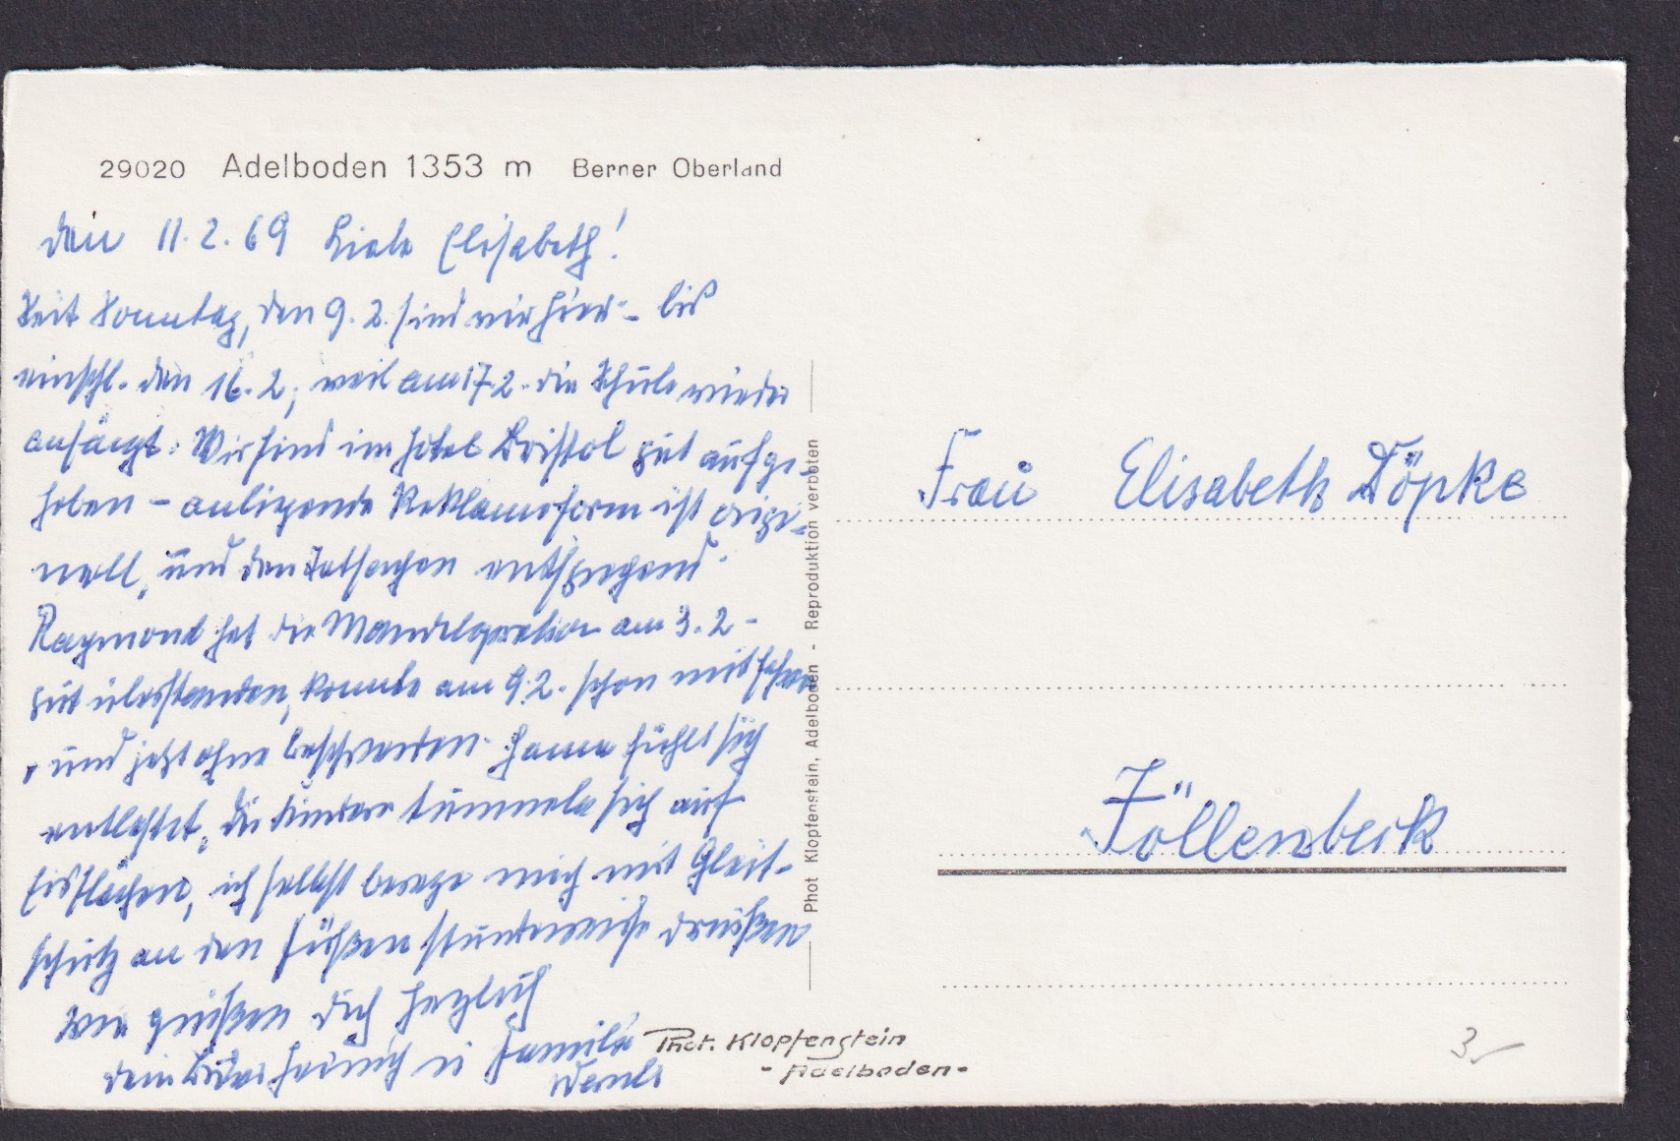 29020 Adelboden 1353 m Berner Oberland
den 11.2.69 Liebe Elisabeth!
Seit Sonntag, den 9.2. sind wir hier - bis
einschl. den 16.2, weil am 17.2. die Schule wieder
anfängt. Wir sind im Hotel Bristol gut aufge-
hoben - anliegende Reklameform ist origi-
nell, und den Tatsachen entsprechend.
Raymond hat die Mandeloperation am 3.2 -
gut überstanden, konnte am 9.2. schon mitfahren
und jetzt ohne Beschwerden. Hanna fühlt sich
entlastet, die Kinder tummeln sich auf
Eisflächen, ich selbst bewege mich mit Gleit-
schutz an den Füßen stundenweise draußen
Wir grüßen Dich herzlich
Dein Bruder Heinrich u Familie
Phot Klopfenstein, Adelboden - Reproduktion verboten
Phot. Klopfenstein
- Adelboden -
Frau Elisabeth Döpke
Jöllenbeck
3